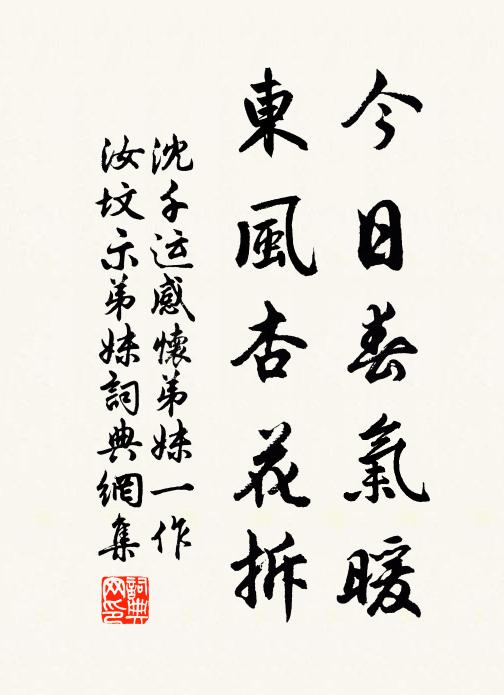 今日春氣暖
東風杏花拆
沈千运感懷弟妹一作
汝墳示弟妹詞典網集
詞典
网印